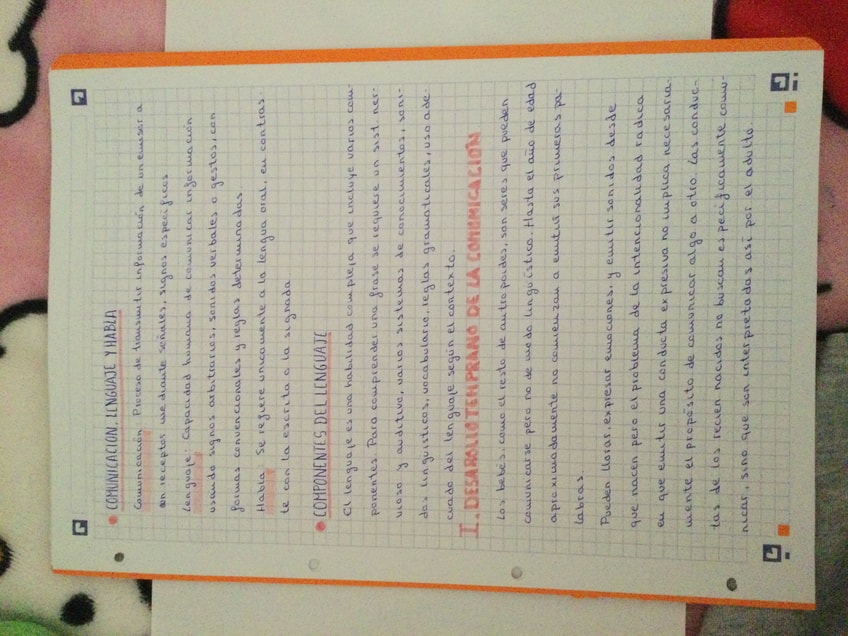 COMUNICACION, LENGUAJE Y HABLA
Comunicación: Proceso de transmitir información de un emisor a
un receptor mediante señales, signos específicos
Lenguaje: Capacidad humana de comunicar información
usando signos arbitrarios, sonidos verbales o gestos, con
formas convencionales y reglas determinadas.
Habla: Se refiere únicamente a la lengua oral, en contras-
te con la escrita o la signada
COMPONENTES DEL LENGUAJE
El lenguaje es una habilidad compleja que incluye varios com-
ponentes. Para comprender una frase se requiere un sist. ner-
vioso y auditivo, varios sistemas de conocimientos, soni-
dos lingüísticos, vocabulario, reglas gramaticales, uso ade-
cuado del lenguaje según el contexto.
I. DESAROLLO TEMPRANO DE LA COMUNICACION
Los bebés, como el resto de antropoides, son seres que pueden
comunicarse pero no de modo lingüístico. Hasta el año de edad
aproximadamente no comienzan a emitir sus primeras pa-
labras.
Pueden llorar, expresar emociones, y emitir sonidos desde
que nacen pero el problema de la intencionalidad radica
en que emitir una conducta expresiva no implica necesaria-
mente el propósito de comunicar algo a otro. Las conduc-
tas de los recien nacidos no buscan especificamente comu-
nicar, sino que son interpretadas así por el adulto.